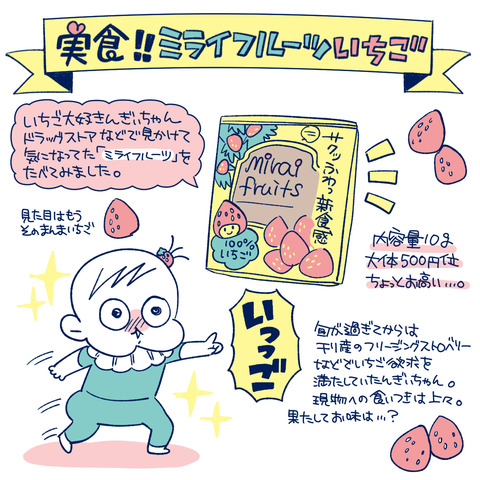 実食!!ミライフルーツいちご
いちご大好きんぎぃちゃん
ドラッグストアなどで見かけて
気になってた「ミライフルーツ」を
たべてみました。
見た目はもう
そのまんまいちご
mirai
fruits
サクッふわっ新食感
100%
いちご
内容量10g
大体500円位
ちょっとお高い…。
いっっご
旬が過ぎてからは
干リ産のフリージングストロベリー
などでいちご欲求を
満たしていたんぎぃちゃん。
現物への食いつきは上々。
果たしてお味は…?